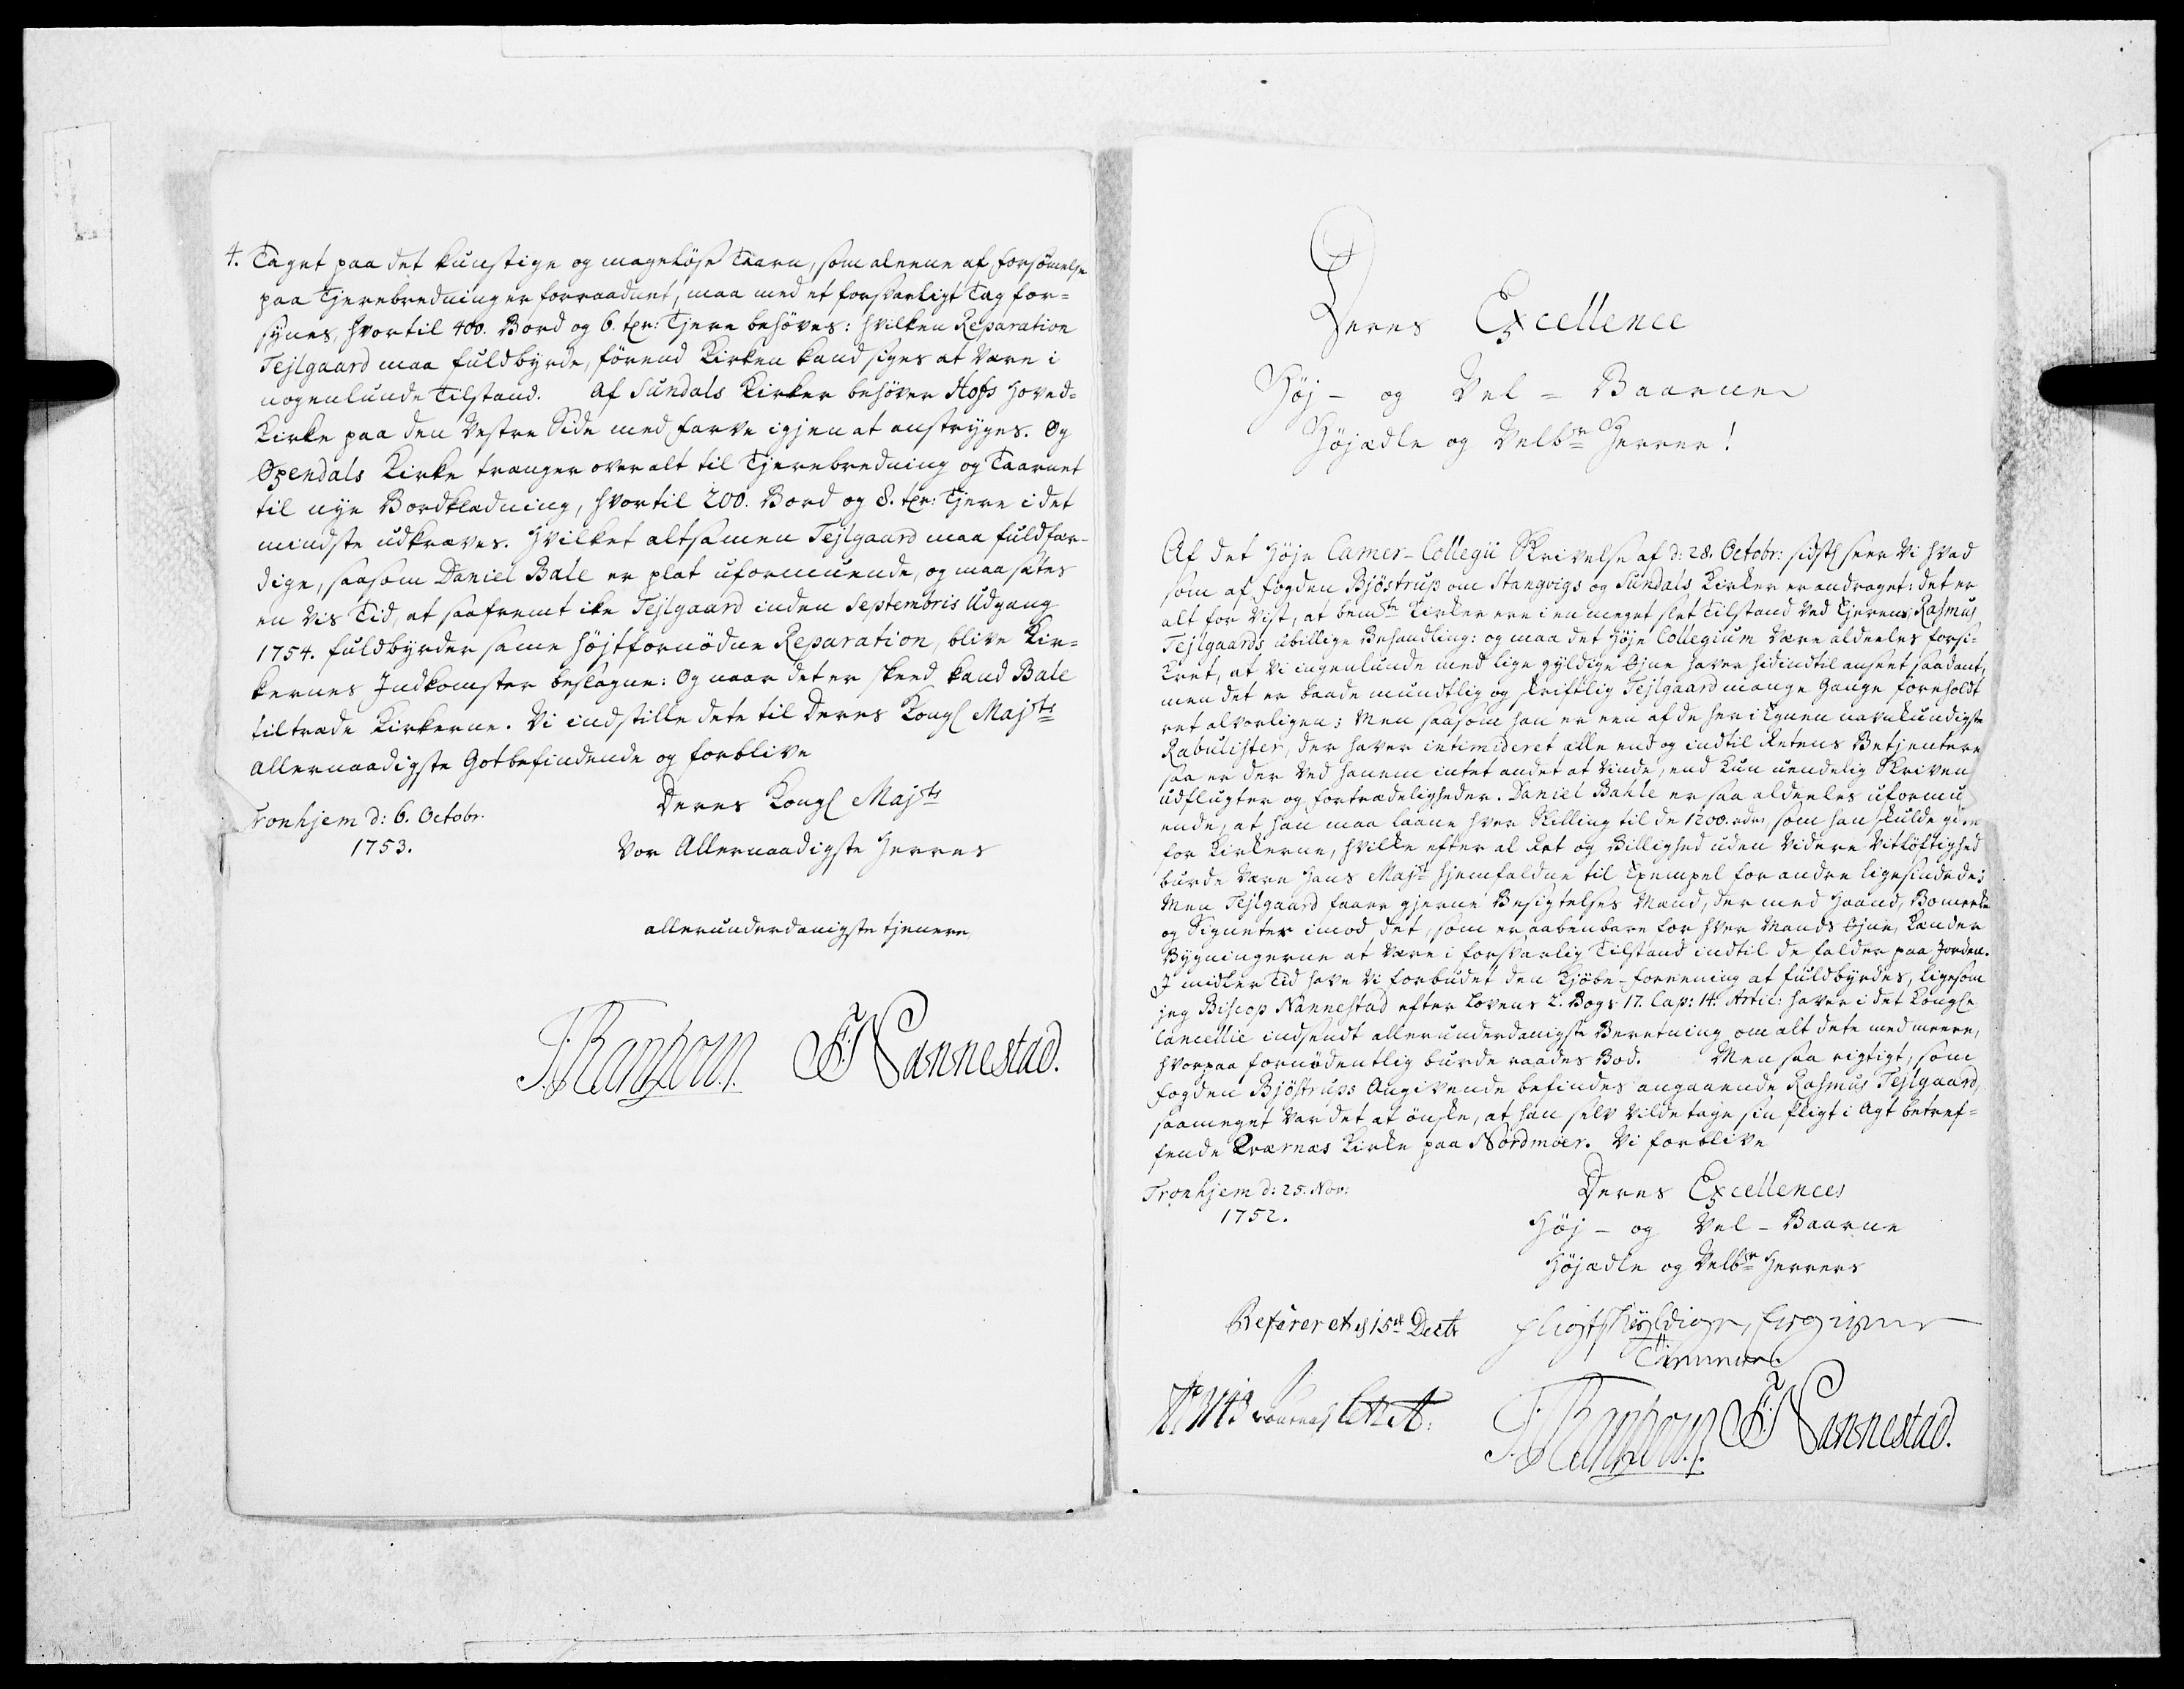 4. Taget paa det kunstige og mageløse Taarn, som aleene af forsömmelse
paa Tjerebredning er forraadnet, maa med et forsvarligt Tag for=
synes, hvortil 400. Bord og 6. tpr: Tjere behöves: hvilken Reparation
Tejlgaard maa fuldbyrde, förend Kirken kand siges at være i
nogenlunde Tilstand. Af Sundals Kirker behöver Hofs Hoved=
Kirke paa den Vestre Side med farve igjen at anstryges. Og
Øxendals Kirke trænger over alt til Tjerebredning og Taarnet
til nye Bordklædning, hvortil 200. Bord og 8. tpr: Tjere i det
mindste udkræves. Hvilket altsamen Tejlgaard maa fuldfær-
dige, saasom Daniel Bale er plat uformuende, og maa sætes
en vis Tid, at saafremt ike Tejlgaard inden Septembris Udgang
1754. fuldbyrder samme höjstfornödne Reparation, blive Kir=
kernes Indkomster beslagne: Og naar det er skeed kand Bale
tiltræde Kirkerne. Vi indstille dete til Deres Kongl Majsts
allernaadigste Gotbefindende og forblive
Deres Kongl Majsts
Tronhjem d: 6. Octobr.
1753.
Vor Allernaadigste Herres
allerunderdanigste tjenere
J. F. Nannestad.
Deres Excellence
Höj - og Vel - Baarne
Höjædle og Velbne Herrer!
Af det Höje Camer-Collegii Skrivelse af d: 28. Octobr: sidstl seer Vi hvad
som af Fogden Bjöstrup om Stangvigs og Sundals Kirker er andraget: det er
alt for vist, at bemte Kirker ere i en meget slet Tilstand ved Ejerens Rasmus
Tejlgaards ubillige Behandling: og maa det Höje Collegium være aldeeles forsi=
kret, at Vi ingenlunde med lige gyldige Øjne haver hidindtil anseet saadant,
men det er baade mundtlig og skriftlig Tejlgaard mange Gange foreholdt
ret alvorligen; Men saasom han er een af de her i Egnen navnkundigste
Rabulister, der haver intimideret alle end og indtil Retens Betjentere
saa er der ved hanem intet andet at vinde, end kun uendelig Skriven
udflugter og fortrædeligheder. Daniel Bahle er saa aldeeles uformu
ende, at han maa laane hver Skilling til de 1200. rdr, som han skulde give
for Kirkerne, hvilke efter al Ret og Billighed uden videre Vitlöftighed
burde være Hans Majst hjemfaldne til Exempel for andre ligesindede:
Men Tejlgaard faaer gjerne Besigtelses Mænd, der med Haand, Bomerke
og Signeter imod det, som er aabenbare for hver Mands Øjne, kender
Bygningerne at være i forsvarlig Tilstand indtil de falder paa Jorden.
I midler Tid have Vi forbudet den Kjöbe-foreening at fuldbyrdes, ligesom
jeg Biscop Nannestad efter Lovens 2. Bogs 17. Cap: 14. Artic: haver i det Kongle
Cancellie indsendt allerunderdanigste Beretning om alt dete med meere,
hvorpaa fornödentlig burde raades Bod. Men saa rigtigt, som
Fogden Bjöstrups Angivende befindes angaaende Rasmus Tejlgaard,
saameget var det at önske, at han selv vilde tage sin Pligt i Agt betref=
fende Kværnæs Kirke paa Nordmöer. Vi forblive
Tronhjem d: 25. Nov:
1752.
Deres Excellences
Höj - og Vel - Baarne
Höjædle og Velbne Herrers
Refereret d 15de Decbr
pligtskyldige,
F. Nannestad.